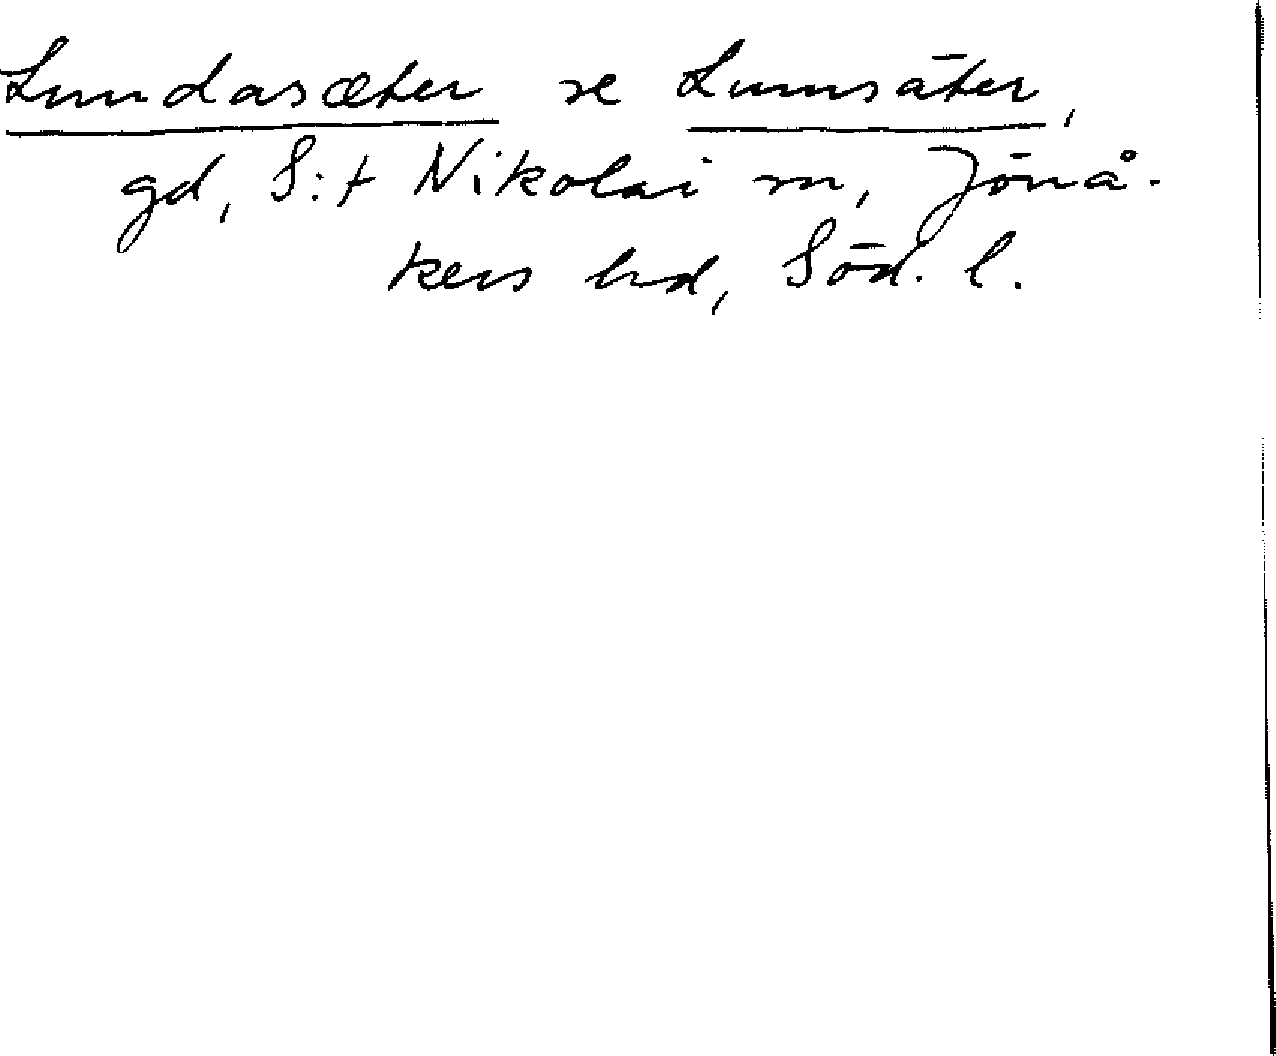 Lundasæter se Lunsäter,
gd, S:t Nikolai sn, Jönå-
kers hd, Söd. l.